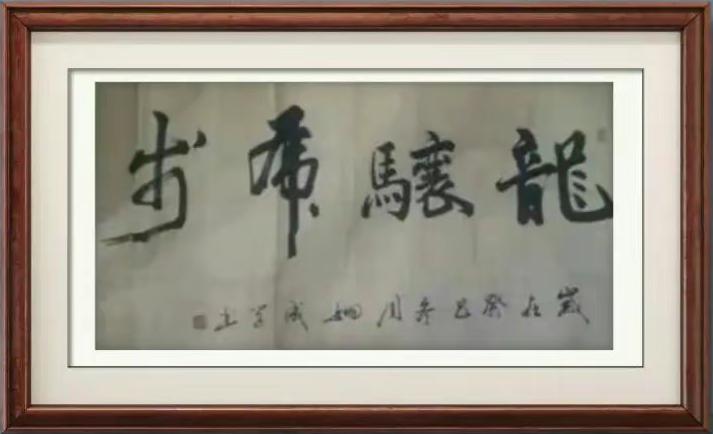 龍驤虎步
歲在癸巳冬月